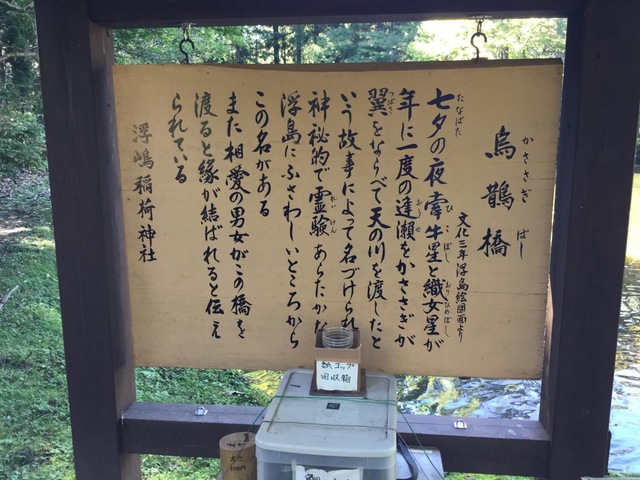 烏鵲橋
かささぎ ばし
文化三年浮島絵図面より
七夕の夜牽牛星と織女星が
たなばた ひこぼし おりひめぼし
年に一度の逢瀬をかささぎが
おうせ
翼をならべて天の川を渡したと
つばさ
いう故事によって名づけられ
神秘的で霊験あらたかな
れいけん
浮島にふさわしいところから
この名がある
また相愛の男女がこの橋を
渡ると縁が結ばれると伝え
られている
浮嶋稲荷神社
紙コップ
回収箱
100円